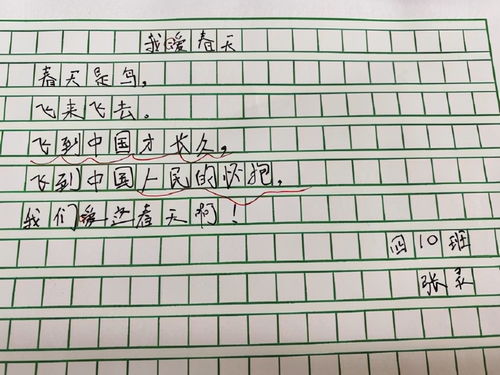 我爱春天
春天是鸟，
飞来飞去。
飞到中国才长久，
飞到中国人民的怀抱，
我们爱这春天啊！
四10班
张灵